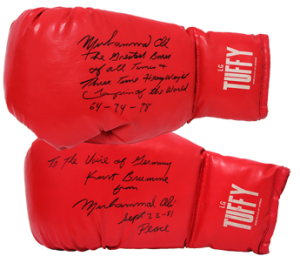 Muhammad Ali
The Greatest Boxer
of all Times +
Three Time Heavy Weight
Champion of the World
64-74-78
LG
TUFFY
To The Voice of Germany
Kurt Brumme
from
Muhammad Ali
Sept 22-81
Peace
LG
TUFFY